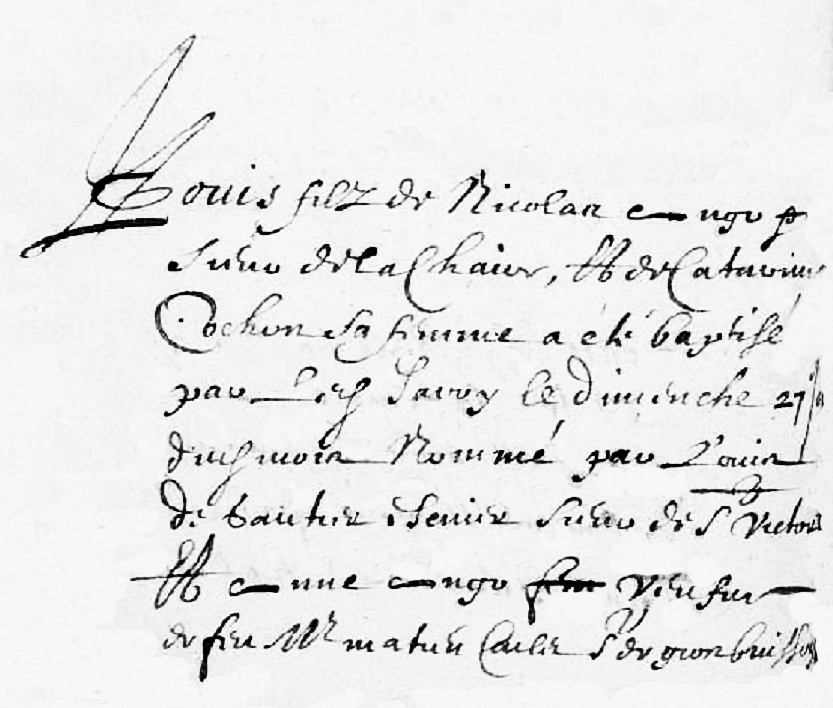 Louis filz de Nicolas Congo
Sieur de la Chaise, Et de Catherine
Cochon sa femme a été baptisé
par led Savoy le dimenche 27
dud mois Nommé par Louis
de Gautier Sieur de St Victor
Et Anne Congo veufue
de feu Mr matieu Sr de gronbuisson